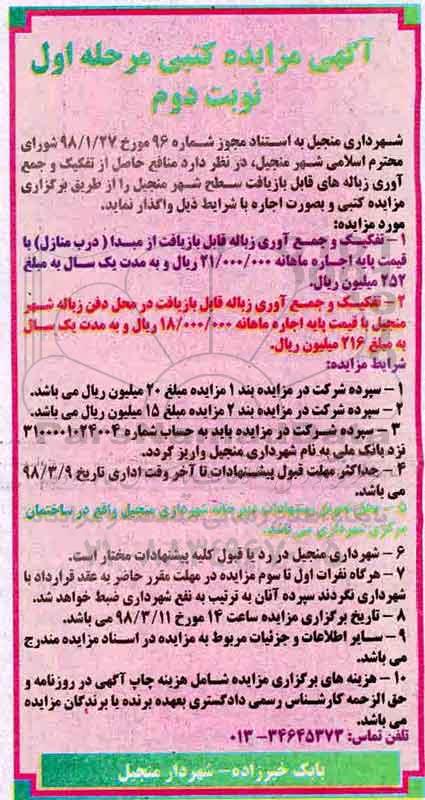 آگهی مزایده کتبی مرحله اول
نوبت دوم
شهرداری منجیل به استناد مجوز شماره ۹۶ مورخ ۹۸/۱/۲۷ شورای
محترم اسلامی شهر منجیل، در نظر دارد منافع حاصل از تفکیک و جمع
آوری زباله های قابل بازیافت سطح شهر منجیل را از طریق برگزاری
مزایده کتبی و بصورت اجاره با شرایط ذیل واگذار نماید.
مورد مزایده:
۱ - تفکیک و جمع آوری زباله قابل بازیافت از مبدا ( درب منازل) با
قیمت پایه اجاره ماهانه ۲۱/۰۰۰/۰۰۰ ریال و به مدت یک سال به مبلغ
۲۵۲ میلیون ریال.
۲ - تفکیک و جمع آوری زباله قابل بازیافت در محل دفن زباله شهر
منجیل با قیمت پایه اجاره ماهانه ۱۸/۰۰۰/۰۰۰ ریال و به مدت یک سال
به مبلغ ۲۱۶ میلیون ریال.
شرایط مزایده:
۱ - سپرده شرکت در مزایده بند ۱ مزایده مبلغ ۲۰ میلیون ریال می باشد.
۲ - سپرده شرکت در مزایده بند ۲ مزایده مبلغ ۱۵ میلیون ریال می باشد.
۳ - سپرده شرکت در مزایده باید به حساب شماره ۳۱۰۰۰۰۱۰۲۴۰۰۴
نزد بانک ملی به نام شهرداری منجیل واریز گردد.
۴ - حداکثر مهلت قبول پیشنهادات تا آخر وقت اداری تاریخ ۹۸/۳/۹
می باشد.
۵ - محل تحویل پیشنهادات دبیرخانه شهرداری منجیل واقع در ساختمان
مرکزی شهرداری می باشد.
۶ - شهرداری منجیل در رد یا قبول کلیه پیشنهادات مختار است.
۷ - هرگاه نفرات اول تا سوم مزایده در مهلت مقرر حاضر به عقد قرارداد با
شهرداری نگردند سپرده آنان به ترتیب به نفع شهرداری ضبط خواهد شد.
۸ - تاریخ برگزاری مزایده ساعت ۱۴ مورخ ۹۸/۳/۱۱ می باشد.
۹ - سایر اطلاعات و جزئیات مربوط به مزایده در اسناد مزایده مندرج
می باشد.
۱۰ - هزینه های برگزاری مزایده شامل هزینه چاپ آگهی در روزنامه و
حق الزحمه کارشناس رسمی دادگستری بعهده برنده یا برندگان مزایده
می باشد.
تلفن تماس: ۳۴۶۴۵۳۷۳- ۰۱۳
بابک خبرزاده - شهردار منجیل